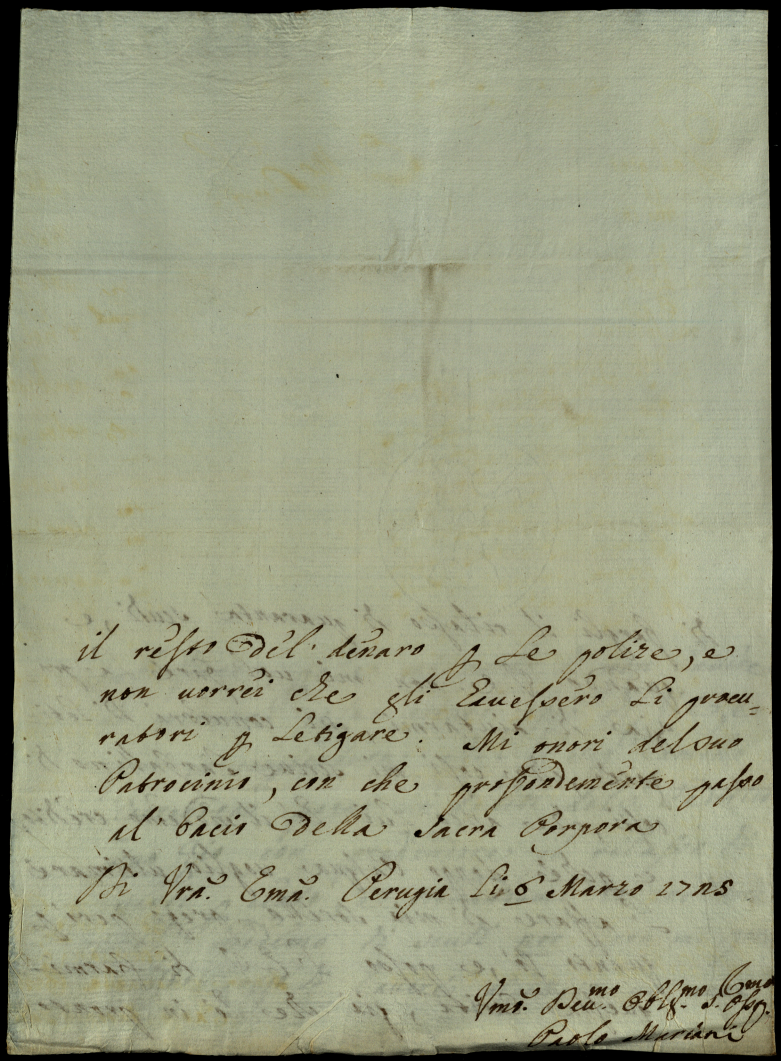 il resto del' denaro p le polize, e
non vorrei che gli Eavessero li procu=
ratori p Letigare. Mi onori del suo
Patrocinio, con che profondemente passo
al' bacio della sacra Porpora
Di Vra. Ema. Perugia li 6 Marzo
Vmo. Deu.mo Obl.mo
Paolo Mariani